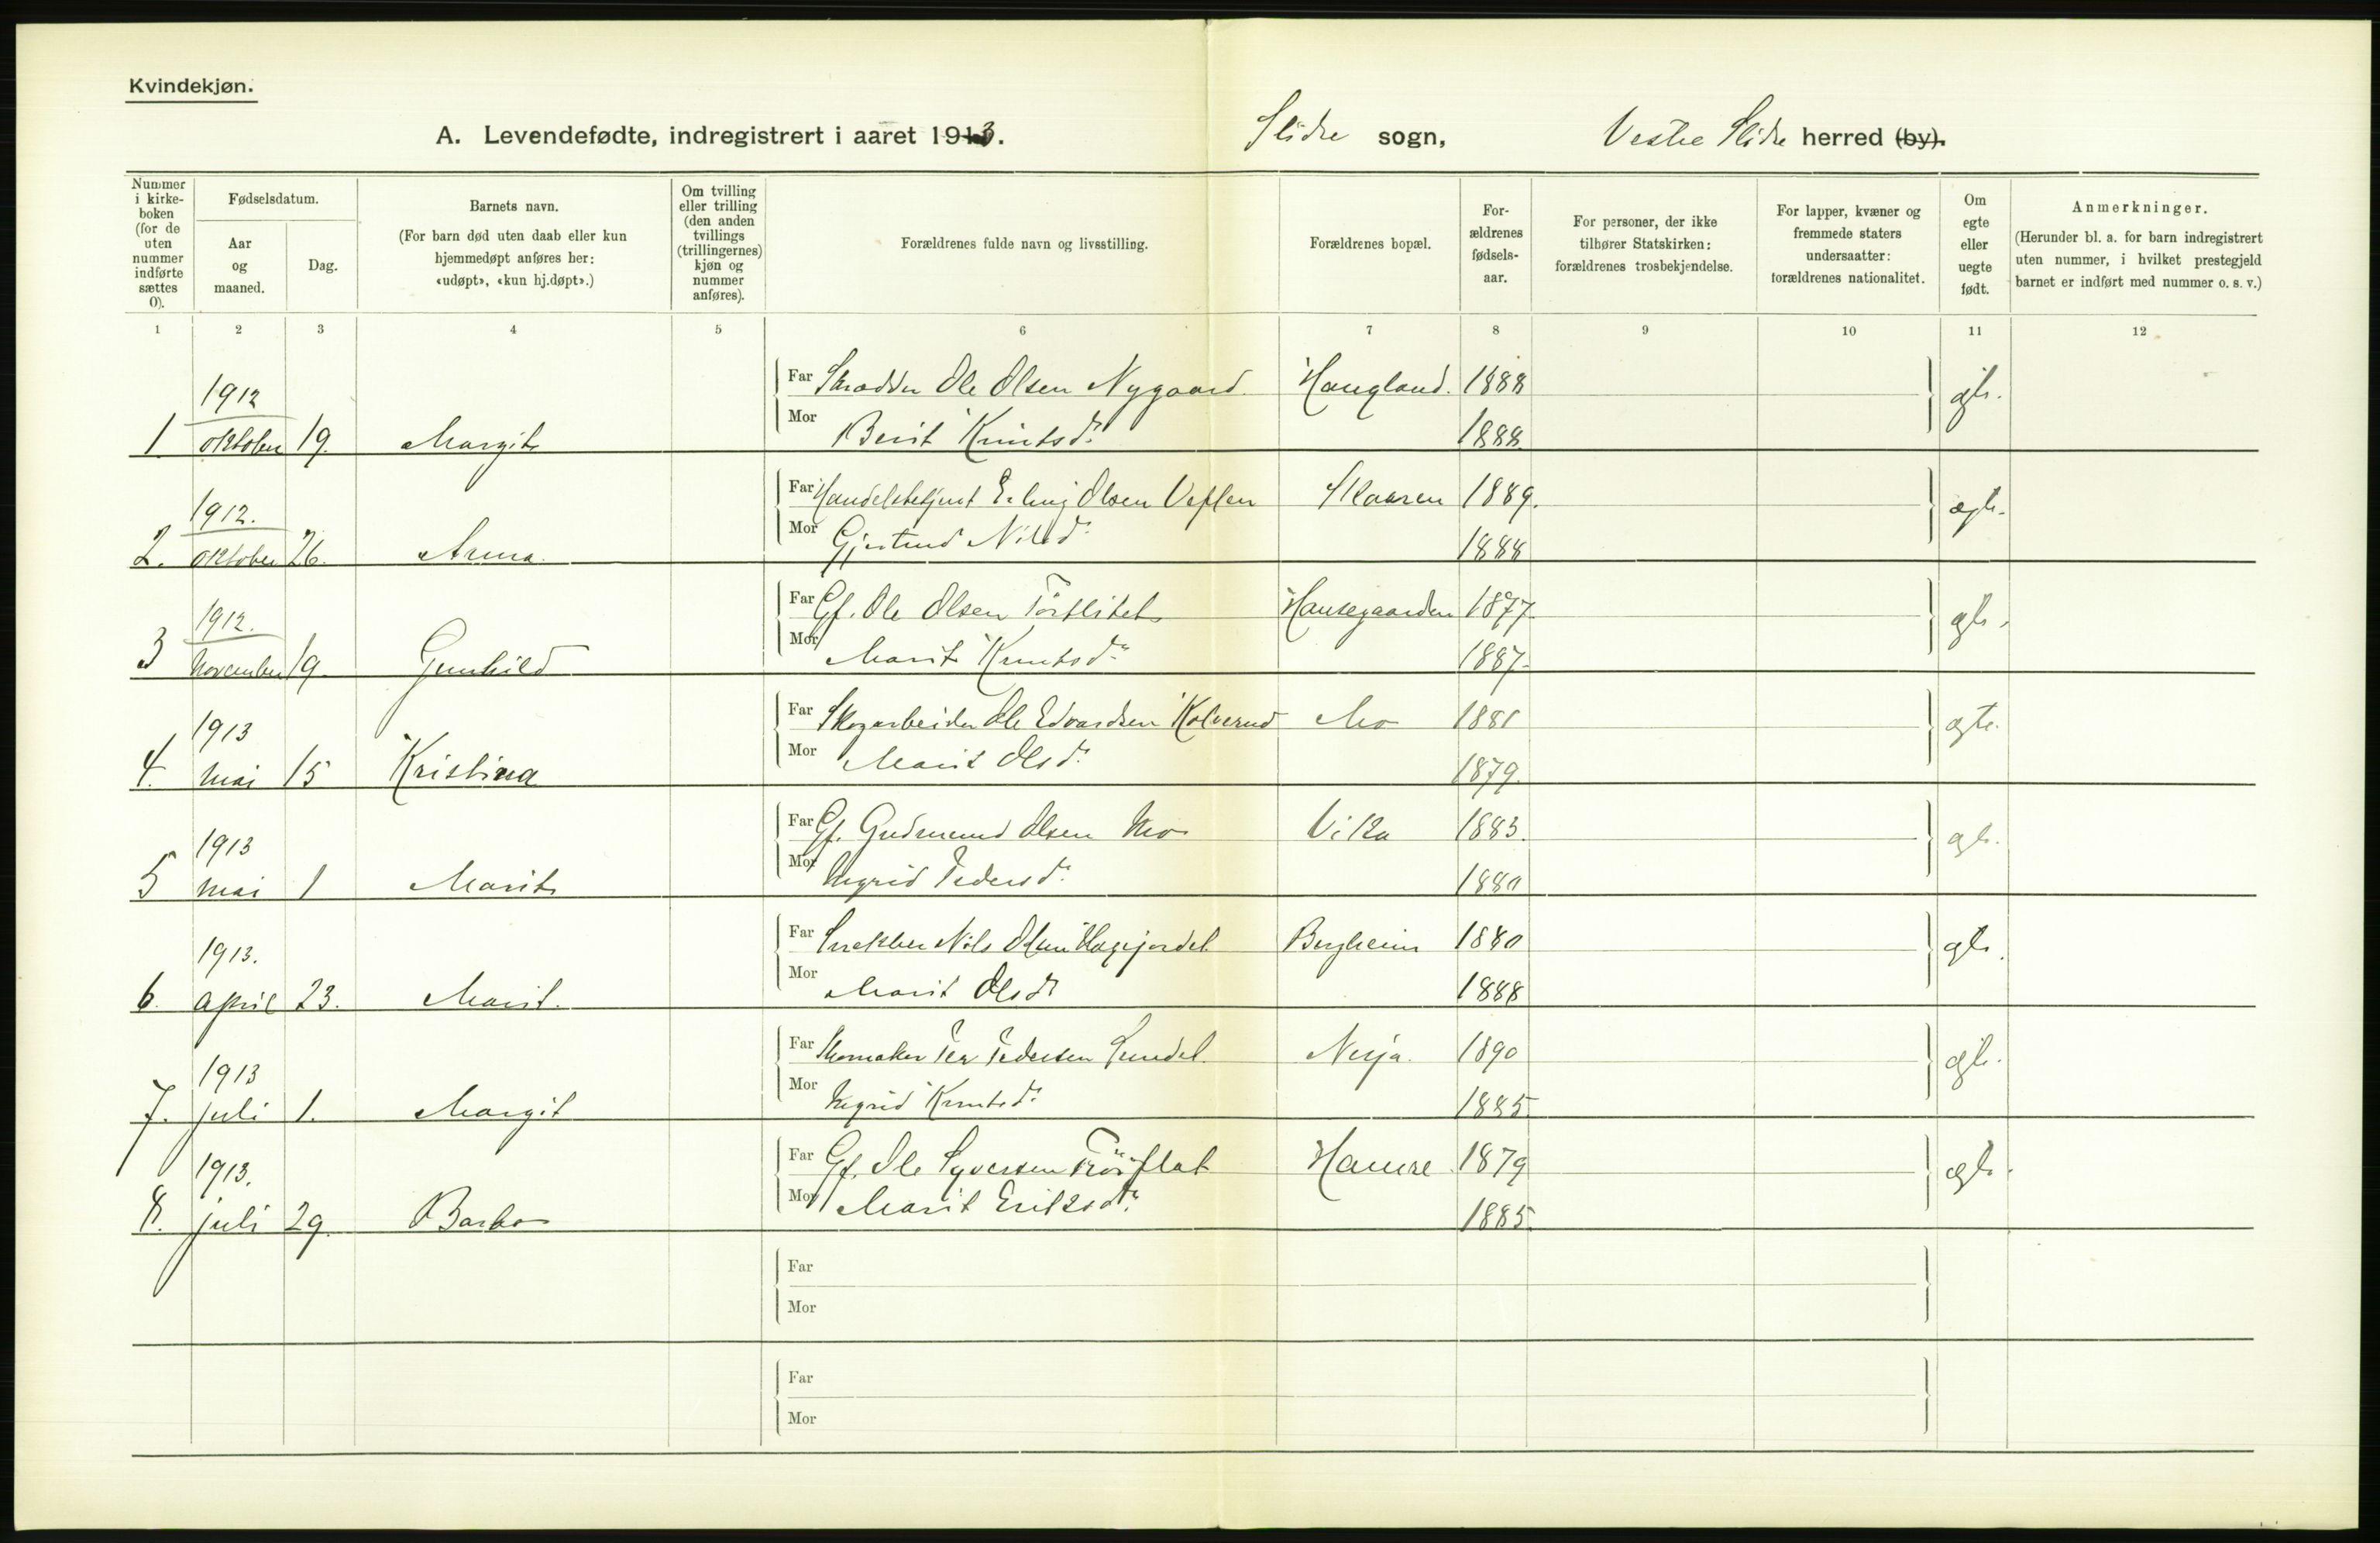 Kvindekjøn.
A. Levendefødte, indregistrert i aaret 1913. Slidre sogn, Vestre Slidre herred (by).
Nummer i kirkeboken (for de uten nummer indførte sættes 0).
Fødselsdatum.
Aar og maaned.
Dag.
Barnets navn.
(For barn død uten daab eller kun hjemmedøpt anføres her: «udøpt», «kun hj.døpt».)
Om tvilling eller trilling (den anden tvillings (trillingernes) kjøn og nummer anføres).
Forældrenes fulde navn og livsstilling.
Forældrenes bopæl.
Forældrenes fødselsaar.
For personer, der ikke tilhører Statskirken: forældrenes trosbekjendelse.
For lapper, kvæner og fremmede staters undersaatter: forældrenes nationalitet.
Om egte eller uegte født.
Anmerkninger.
(Herunder bl. a. for barn indregistrert uten nummer, i hvilket prestegjeld barnet er indført med nummer o. s. v.)
1 2 3 4 5 6 7 8 9 10 11 12
1912 Far Skrædder Ole Olsen Nygaard Haugland. 1888 egte.
1 oktober 19. Margit Mor Berit Knutsdr. 1888.
1912. Far Handelsbetjent Erling Olsen Veflen Skaaren 1889. egte.
2. oktober 26. Anna. Mor Gjertrud Nilsdr. 1888
1912. Far Gf. Ole Olsen Hausegaarden 1877. egte.
3 November 19. Gunhild Mor Marit Knutsdr. 1887.
1913 Far Skogarbeider Ole Edvardsen Kolverud Mo 1881 egte.
4. mai 15 Kristina Mor Marit Olsdr. 1879.
1913 Far Gf. Gudmund Olsen Mo Vika 1883. egte.
5 mai 1 Marit Mor Ingrid Pedersdr. 1880
1913. Far Snekker Nils Olsen Bergheim 1880 egte.
6. april 23. Marit. Mor Marit Olsdr. 1888
1913 Far Skomaker Per Pedersen Nesja. 1890 egte.
7. juli 1. Margit Mor Ingrid Knutsdr. 1885
1913. Far Gf. Ole Syversen Hamre 1879 egte.
8. juli 29. Barbo Mor Marit Eriksdr. 1885.
Far
Mor
Far
Mor